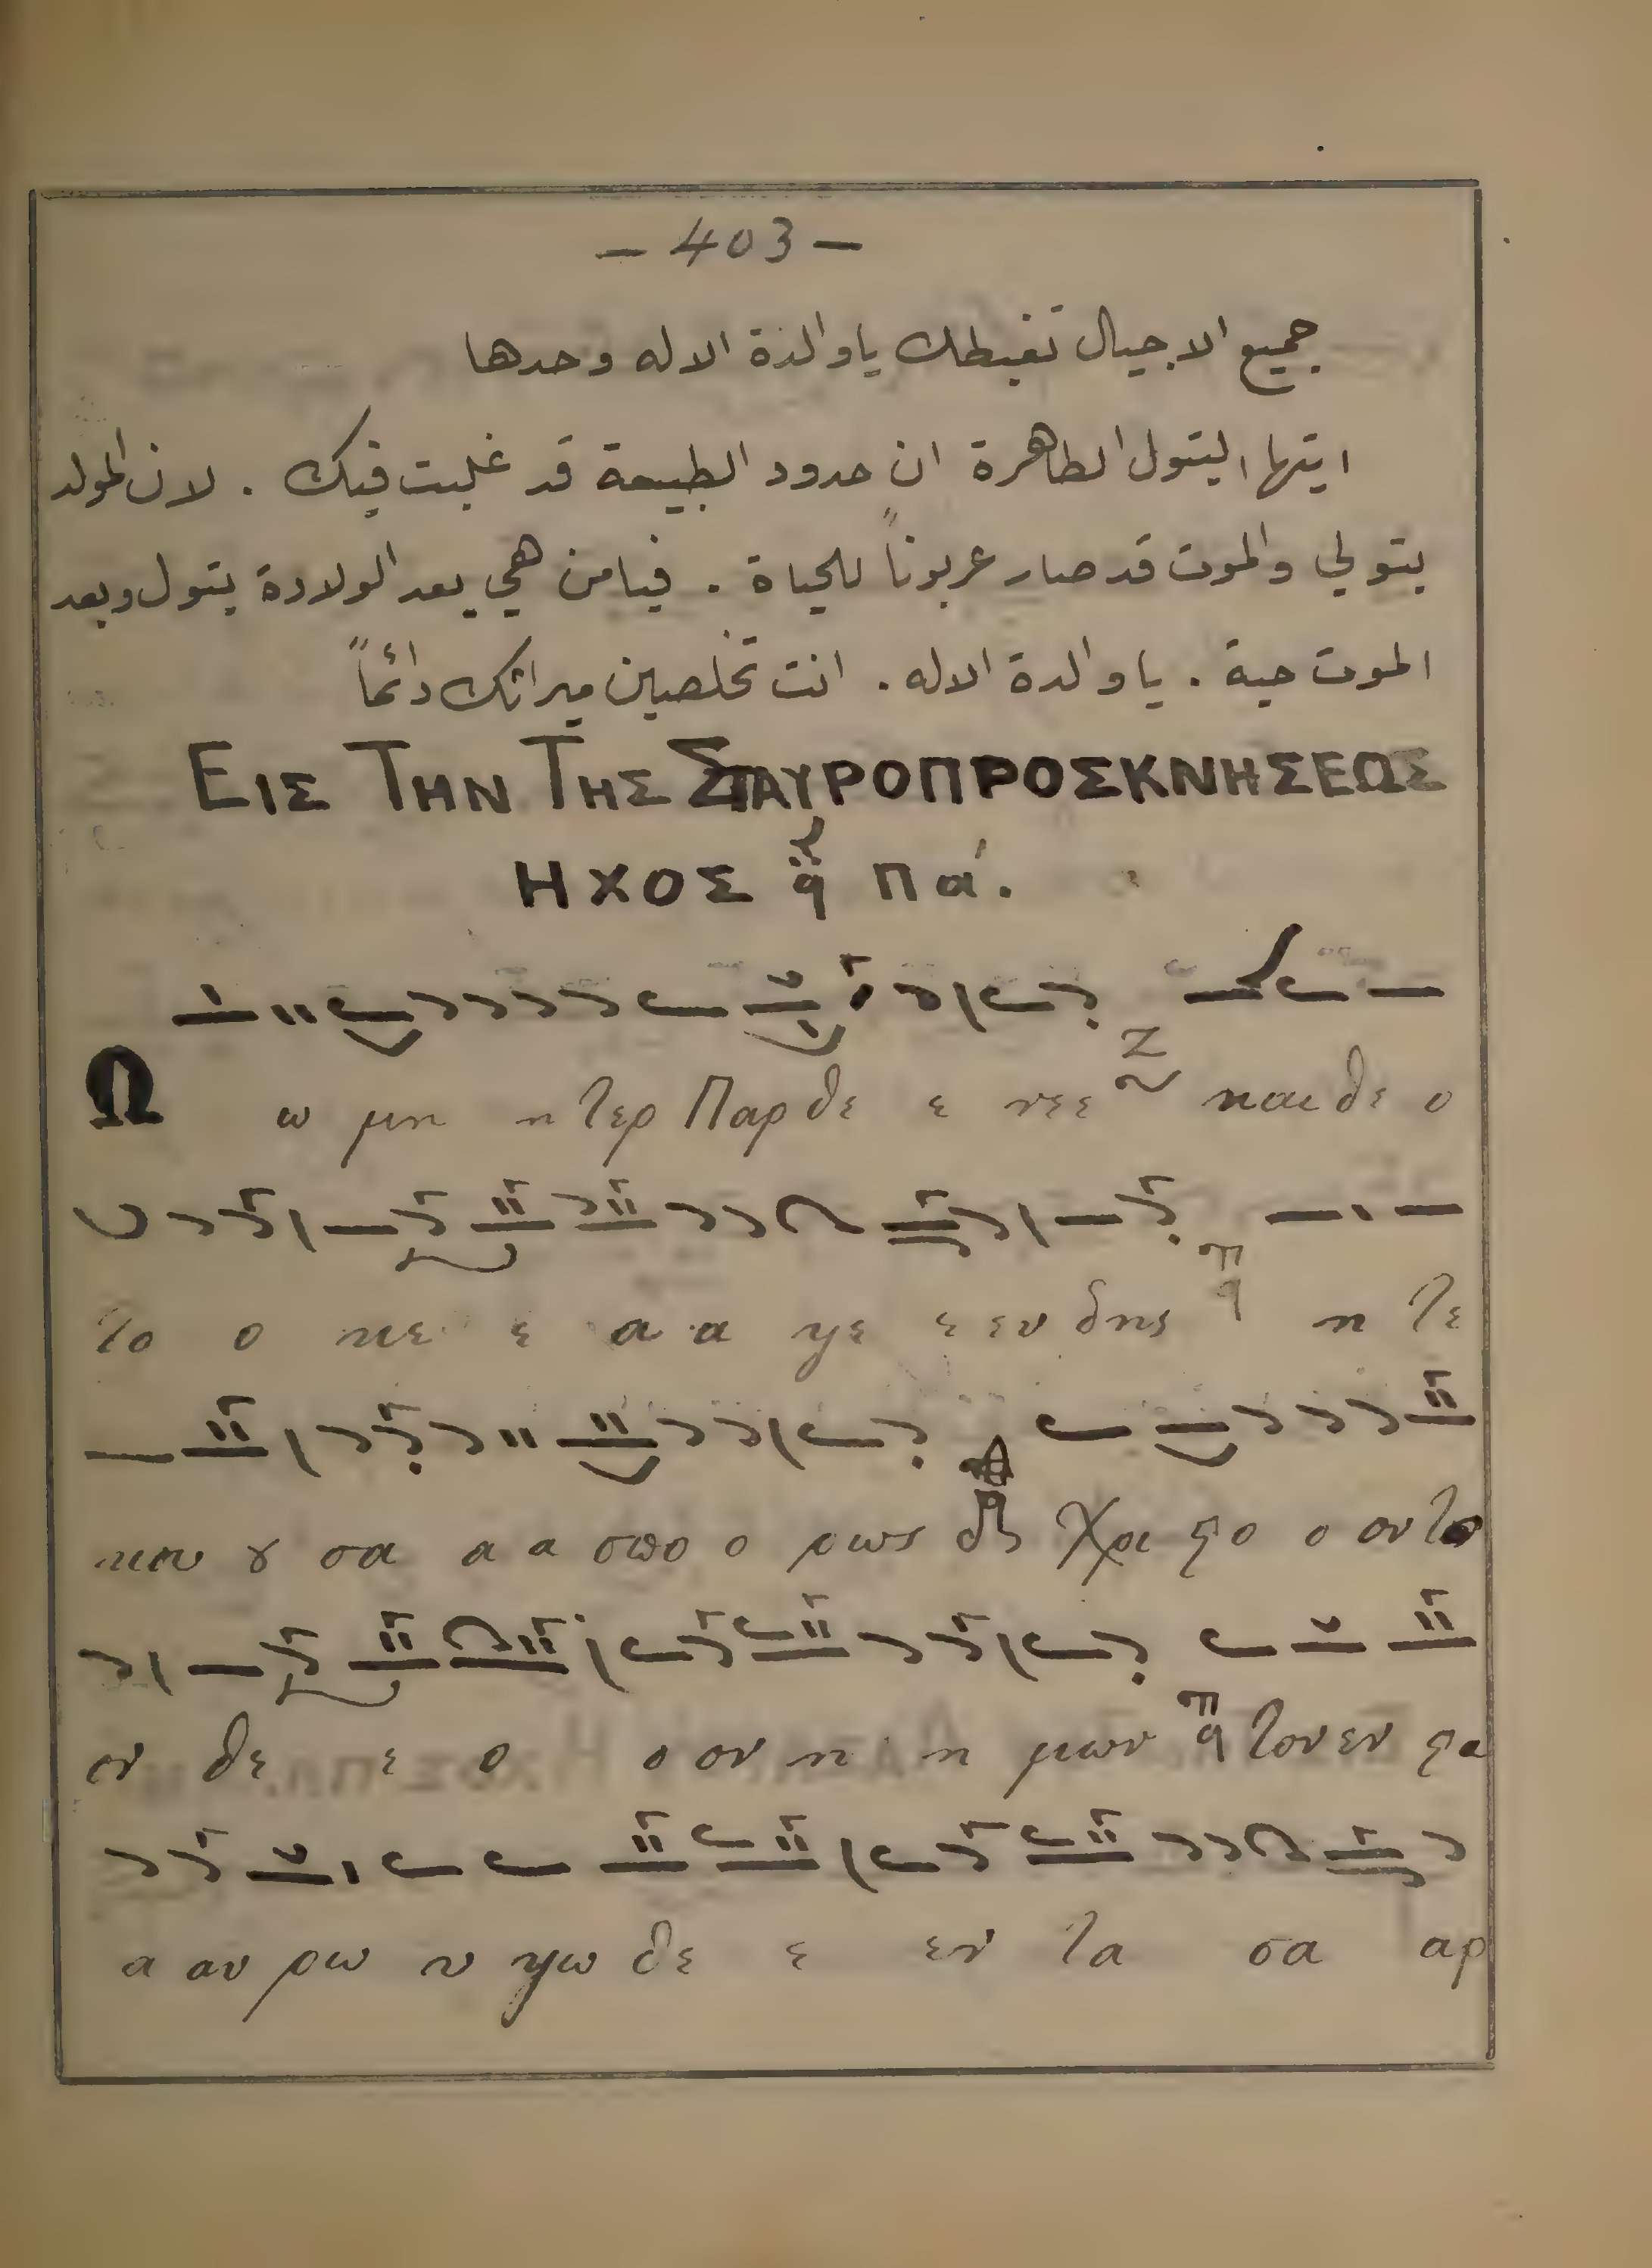 - 403 -
جميع الاجيال تغبطك يا والدة الاله وحدها
ايتها البتول الطاهرة ان حدود الطبيعة قد غلبت فيك . لان المولد
بتولي والموت قد صار عربوناً للحياة . فيا من هي بعد الولادة بتول وبعد
الموت حية . يا والدة الاله . انت تخلصين ميراثك دائماً
ΕΙΣ ΤΗΝ ΤΗΣ ΣΤΑΥΡΟΠΡΟΣΚΝΗΣΕΩΣ
ΗΧΟΣ πα.
Ω ω μη η τερ Παρ θε ε νεε και θε ο
το ο κε ε α α ψε ε ευ δης η τε
κου ȣ σα α α σπο ο ρως Χρι ϛο ο ον το
ον θε ε ο ο ον η η μων τον εν ϛα
α αυ ρω υ ψω θε ε εν τα σα αρ